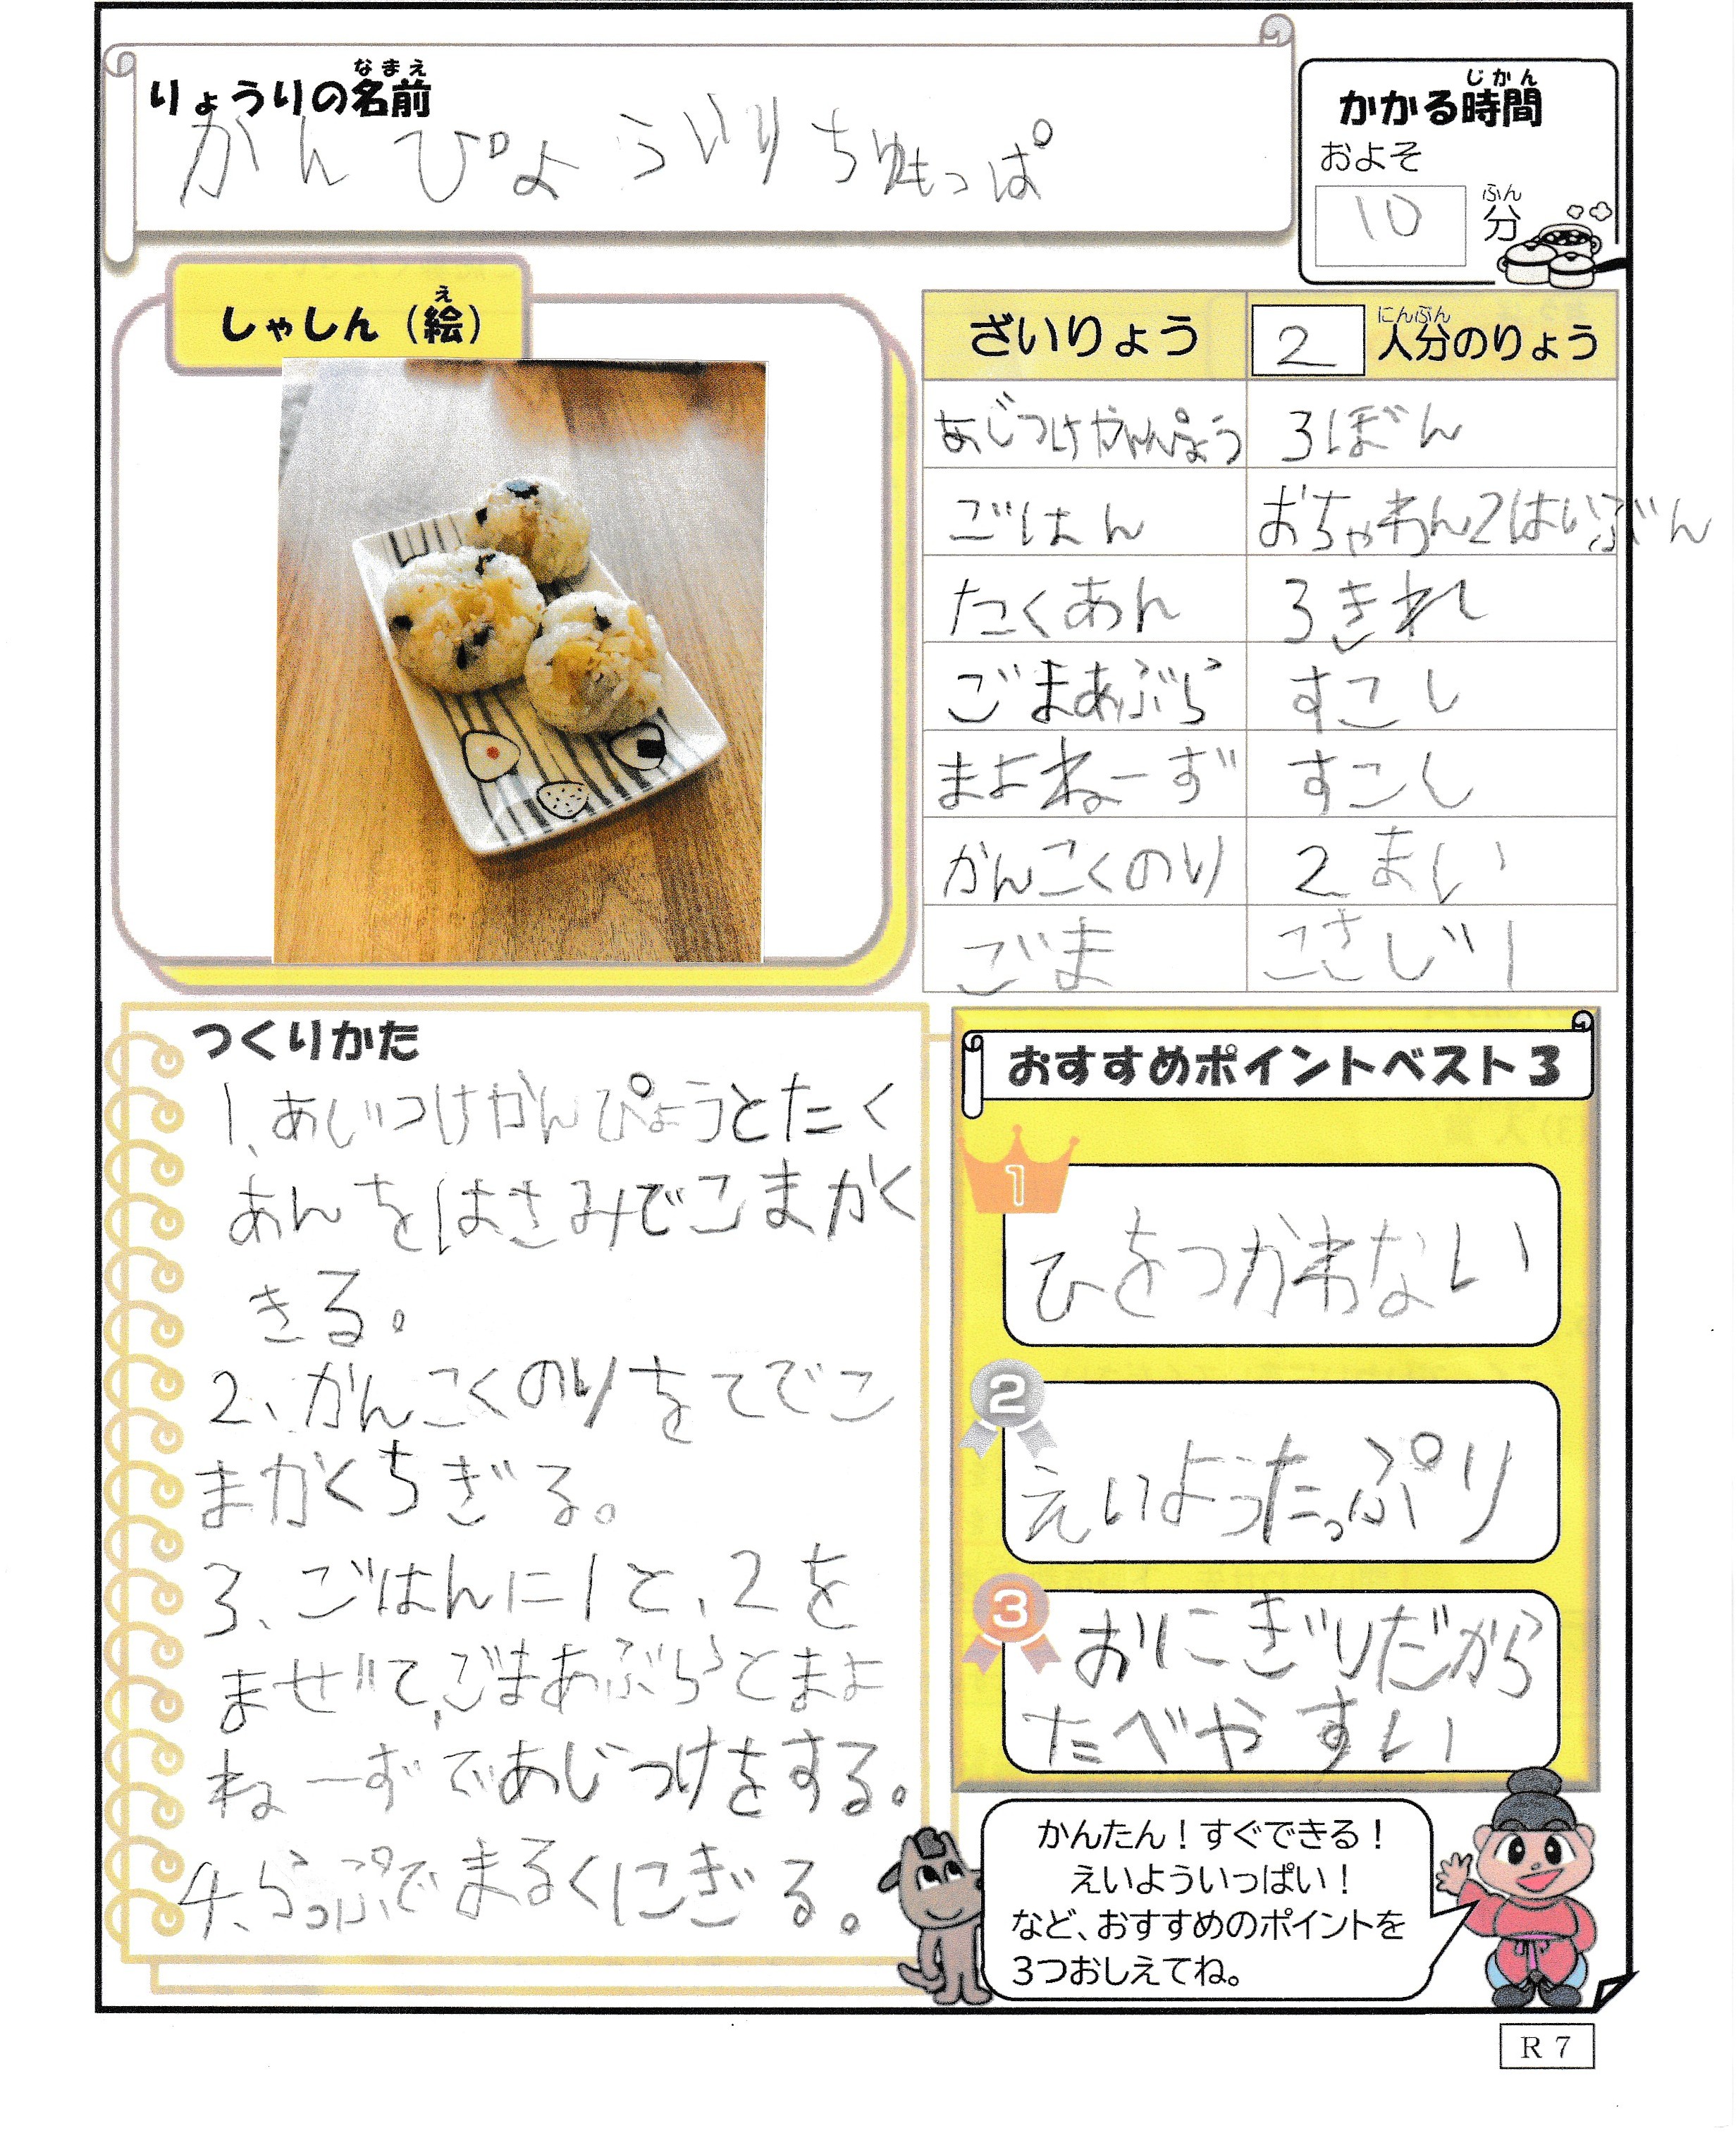 りょうりの名前
なまえ
かんぴょういりちゅもっぱ
かかる時間
じかん
およそ
10
分
ふん
しゃしん（絵）
え
ざいりょう
2
人分のりょう
にんぶん
あじつけかんぴょう
3ぼん
ごはん
おちゃわん2はいぶん
たくあん
3きれ
ごまあぶら
すこし
まよねーず
すこし
かんこくのり
2まい
ごま
こさじ1
つくりかた
1、あじつけかんぴょうとたく
あんをはさみでこまかく
きる。
2、かんこくのりをてでこ
まかくちぎる。
3、ごはんに1と、2を
まぜて、ごまあぶらとまよ
ねーずであじつけをする。
4、らっぷでまるくにぎる。
おすすめポイントベスト3
1
ひをつかわない
2
えいようたっぷり
3
おにぎりだから
たべやすい
かんたん！すぐできる！
えいよういっぱい！
など、おすすめのポイントを
3つおしえてね。
R7